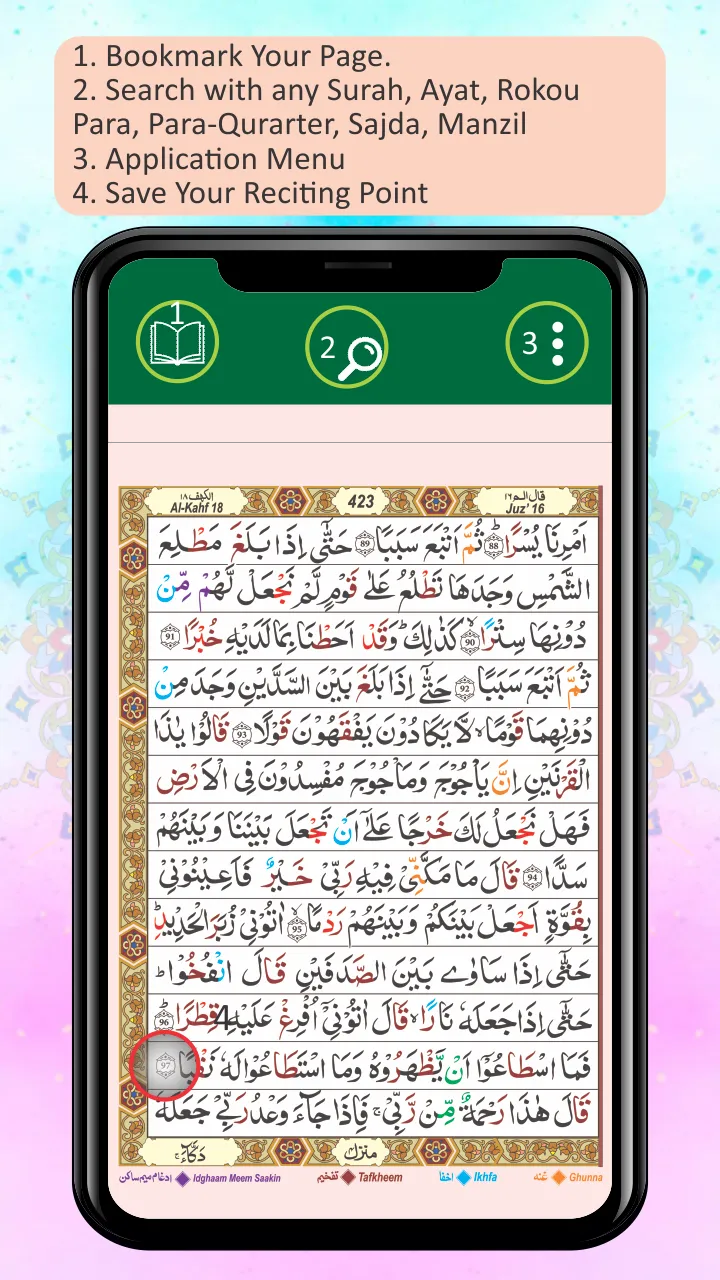 1. Bookmark Your Page.
2. Search with any Surah, Ayat, Rokou
Para, Para-Qurarter, Sajda, Manzil
3. Application Menu
4. Save Your Reciting Point
1
2
3
الكهف ١٨
Al-Kahf 18
423
قال الم ١٦
Juz' 16
اَمْرِنَا يُسْرًا ؕ 88 ثُمَّ اَتْبَعَ سَبَبًا 89 حَتّٰۤى اِذَا بَلَغَ مَطْلِعَ
الشَّمْسِ وَجَدَهَا تَطْلُعُ عَلٰى قَوْمٍ لَّمْ نَجْعَلْ لَّهُمْ مِّنْ
دُوْنِهَا سِتْرًا ۙ 90 كَذٰلِكَ ؕ وَقَدْ اَحَطْنَا بِمَا لَدَيْهِ خُبْرًا 91
ثُمَّ اَتْبَعَ سَبَبًا 92 حَتّٰۤى اِذَا بَلَغَ بَيْنَ السَّدَّيْنِ وَجَدَ مِنْ
دُوْنِهِمَا قَوْمًا ۙ لَّا يَكَادُوْنَ يَفْقَهُوْنَ قَوْلًا 93 قَالُوْا يٰذَا
الْقَرْنَيْنِ اِنَّ يَاْجُوْجَ وَمَاْجُوْجَ مُفْسِدُوْنَ فِى الْاَرْضِ
فَهَلْ نَجْعَلُ لَكَ خَرْجًا عَلٰۤى اَنْ تَجْعَلَ بَيْنَنَا وَبَيْنَهُمْ
سَدًّا 94 قَالَ مَا مَكَّنِّىْ فِيْهِ رَبِّىْ خَيْرٌ فَاَعِيْنُوْنِىْ
بِقُوَّةٍ اَجْعَلْ بَيْنَكُمْ وَبَيْنَهُمْ رَدْمًا ۙ 95 اٰتُوْنِىْ زُبَرَ الْحَدِيْدِ ؕ
حَتّٰۤى اِذَا سَاوٰى بَيْنَ الصَّدَفَيْنِ قَالَ انْفُخُوْا ؕ
حَتّٰۤى اِذَا جَعَلَهٗ نَارًا ۙ قَالَ اٰتُوْنِىْۤ اُفْرِغْ عَلَيْهِ قِطْرًا ؕ 96
4
فَمَا اسْطَاعُوْۤا اَنْ يَّظْهَرُوْهُ وَمَا اسْتَطَاعُوْا لَهٗ نَقْبًا 97
قَالَ هٰذَا رَحْمَةٌ مِّنْ رَّبِّىْ ۚ فَاِذَا جَآءَ وَعْدُ رَبِّىْ جَعَلَهٗ
دَكَّآءَ ۚ
منزل
ادغام میم ساکن Idghaam Meem Saakin
تفخیم Tafkheem
اخفا Ikhfa
غنه Ghunna